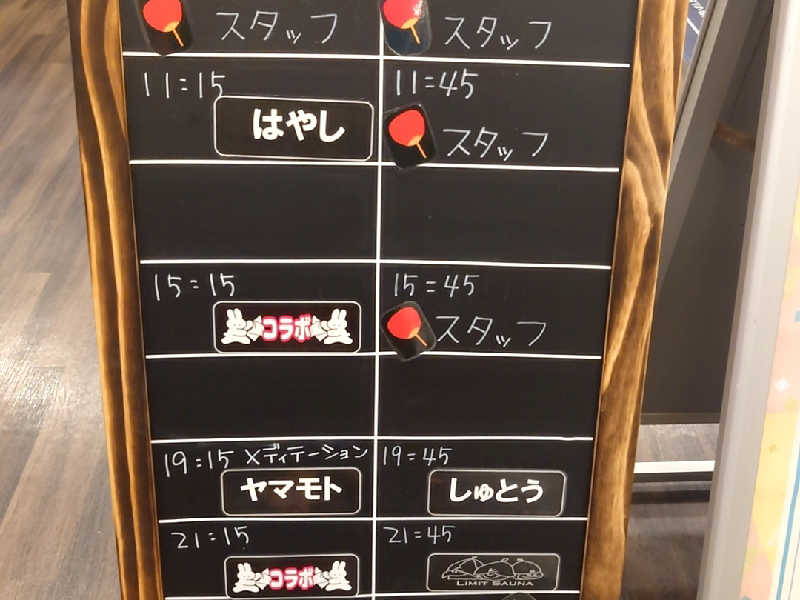 スタッフ スタッフ
11:15 11:45
はやし スタッフ
15:15 15:45
コラボ スタッフ
19:15 メディテーション 19:45
ヤマモト しゅとう
21:15 21:45
コラボ LIMIT SAUNA